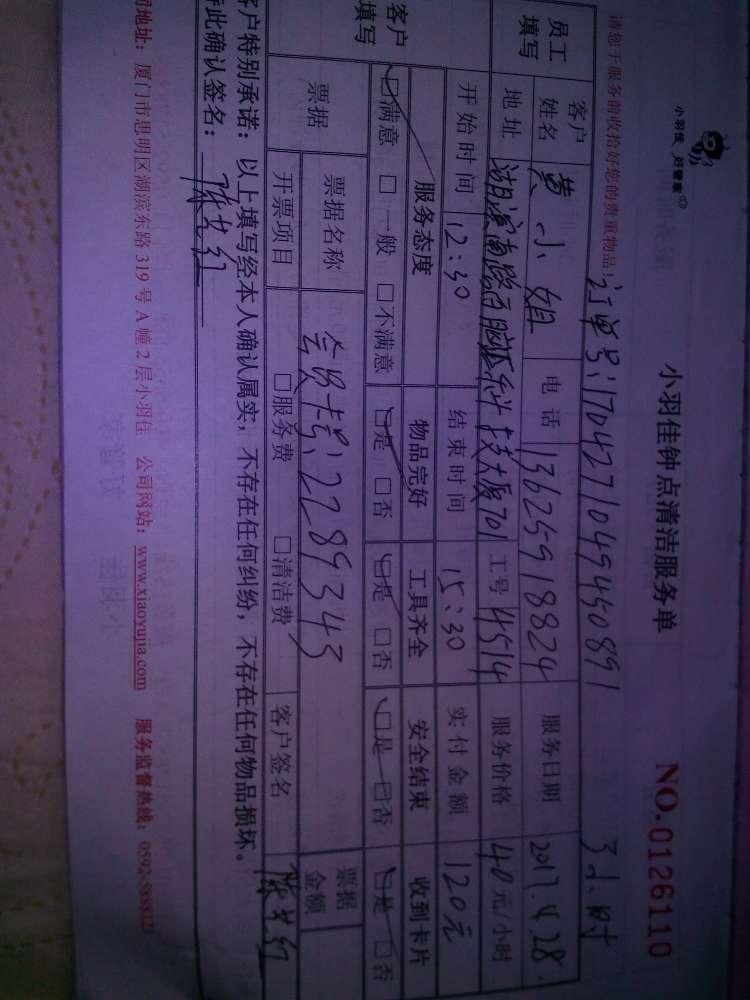 小羽佳 好管家
小羽佳钟点清洁服务单
NO.0126110
请您于服务前收拾好您的贵重物品!
订单号:1704271049450891 3小时
员工填写
客户姓名 黄小姐 电话 13625918824 服务日期 2017.4.28.
地址 湖滨南路百脑汇科技大厦701 工号 4514 服务价格 40元/小时
开始时间 12:30 结束时间 15:30 实付金额 120元
客户填写
服务态度 物品完好 工具齐全 安全结束 收到卡片
☑满意 □一般 □不满意 ☑是 □否 ☑是 □否 ☑是 □否 ☑是 □否
票据 票据名称 会员卡号:2289343 票据金额
开票项目 □服务费 □清洁费 客户签名
客户特别承诺:以上填写经本人确认属实,不存在任何纠纷,不存在任何物品损坏。
特此确认签名:
司地址:厦门市思明区湖滨东路319号A幢2层小羽佳 公司网站:www.xiaoyujia.com 服务监督热线:0592-5888123